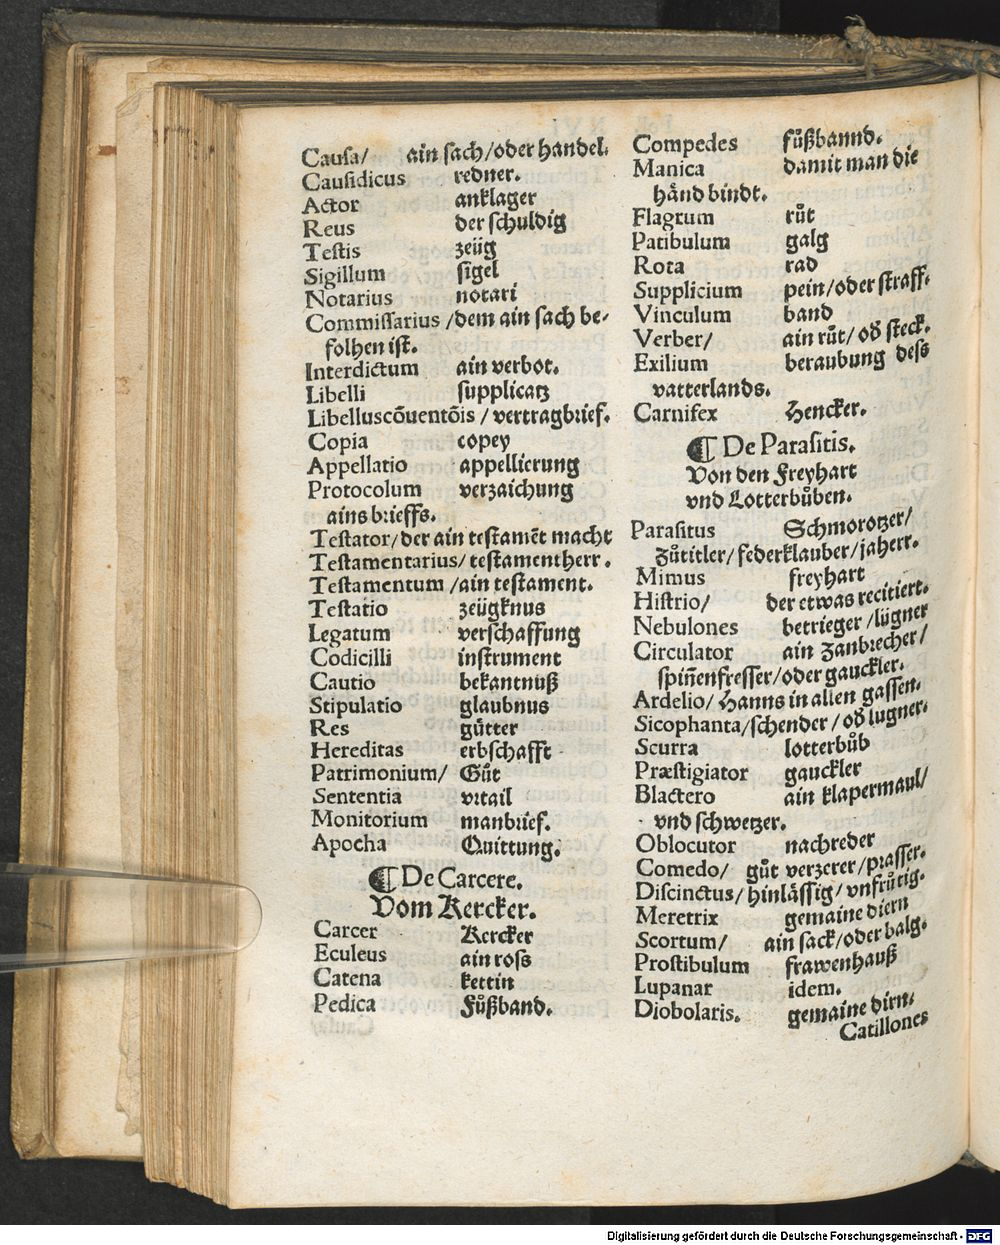 Causa/ ain sach/oder handel.
Causidicus redner.
Actor anklager
Reus der schuldig
Testis zeüg
Sigillum sigel
Notarius notari
Commissarius /dem ain sach be-
folhen ist.
Interdictum ain verbot.
Libelli supplicatz
Libelluscõuentõis / vertragbrief.
Copia copey
Appellatio appellierung
Protocolum verzaichung
ains brieffs.
Testator/der ain testamẽt macht
Testamentarius/ testamentherr.
Testamentum /ain testament.
Testatio zeügknus
Legatum verschaffung
Codicilli instrument
Cautio bekantnuß
Stipulatio glaubnus
Res guͤtter
Hereditas erbschafft
Patrimonium/ Guͦt
Sententia vrtail
Monitorium manbrief.
Apocha Quittung.
¶ De Carcere.
Vom Kercker.
Carcer Kercker
Eculeus ain ross
Catena kettin
Pedica Fuͦßband.
Compedes fuͦßbannd.
Manica damit man die
hånd bindt.
Flagrum ruͦt
Patibulum galg
Rota rad
Supplicium pein/oder straff.
Vinculum band
Verber/ ain ruͦt/ oď steck.
Exilium beraubung dess
vatterlands.
Carnifex Hencker.
¶ De Parasitis.
Von den Freyhart
vnd Lotterbuͦben.
Parasitus Schmorotzer/
Zuͦtitler/ federklauber/jaherr.
Mimus freyhart
Histrio/ der etwas recitiert.
Nebulones betrieger /lügner
Circulator ain Zanbrecher/
spiñenfresser/oder gauckler.
Ardelio/ Hanns in allen gassen.
Sicophanta/schender / oď lugner.
Scurra lotterbuͦb
Præstigiator gauckler
Blactero ain klapermaul/
vnd schwetzer.
Oblocutor nachreder
Comedo/ guͦt verzerer/prasser.
Discinctus/ hinlåssig/ vnfruͦtig.
Meretrix gemaine diern
Scortum/ ain sack/oder balg.
Prostibulum frawenhauß
Lupanar idem.
Diobolaris. gemaine dirn.
Catillones
Digitalisierung gefördert durch die Deutsche Forschungsgemeinschaft - DFG